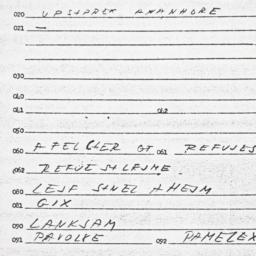 020 UPSAPREK AHANHORE
021 —
030
040
041 042
050
060 AFELCLER GT 061 REFUJES
062 REFUE SALFJME.
080 LEJF SANEL AHEJM
081 GIX
090 LANKSAM
091 PAVOLKE 092 PAMELEX